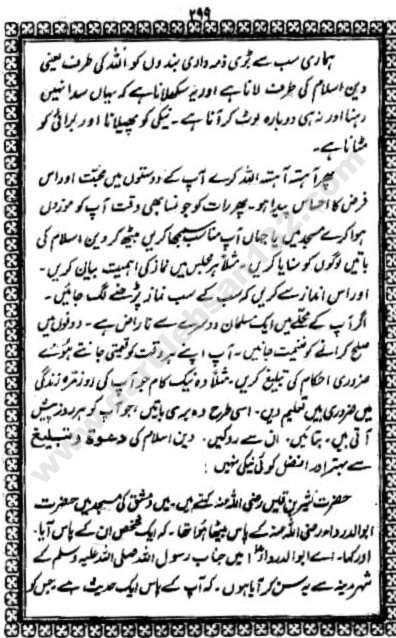 ۲۹۹
ہماری سب سے بڑی ذمہ داری بندوں کو اللہ کی طرف یعنی
دین اسلام کی طرف لانا ہے اور یہ سکھلانا ہے کہ یہاں سدا نہیں
رہنا اور نہ ہی دوبارہ لوٹ کر آنا ہے۔ نیکی کو پھیلانا اور برائی کو
مٹانا ہے۔
پھر آہستہ آہستہ اللہ کرے آپ کے دوستوں میں محبت اور اس
فرض کا احساس پیدا ہو۔ پھر رات کو جونسا بھی وقت آپ کو موزوں
ہوا کرے مسجد میں یا جہاں آپ مناسب سمجھا کریں بیٹھ کر دین اسلام کی
باتیں لوگوں کو سنایا کریں، مثلاً ہر مجلس میں نماز کی اہمیت بیان کریں۔
اور اس انداز سے کریں کہ سب کے سب نماز پڑھنے لگ جائیں۔
اگر آپ کے محلے میں ایک مسلمان دوسرے سے ناراض ہے۔ دونوں میں
صلح کرانے کو غنیمت جانیں۔ آپ اپنے ہر وقت کو قیمتی جانتے ہوئے
ضروری احکام کی تبلیغ کریں۔ مثلاً وہ نیک کام جو آپ کی روزمرہ زندگی
میں ضروری ہیں تعلیم دیں۔ اسی طرح وہ بری باتیں، جو آپ کو ہر روز پیش
آتی ہیں، بتائیں، ان سے روکیں۔ دین اسلام کی دعوۃ و تبلیغ
سے بہتر اور افضل کوئی نیکی نہیں!
حضرت کثیر بن قیس رضی اللہ عنہ کہتے ہیں، میں دمشق کی مسجد میں حضرت
ابوالدرداء رضی اللہ عنہ کے پاس بیٹھا ہوا تھا۔ کہ ایک شخص ان کے پاس آیا۔
اور کہا۔ اے ابوالدرداءؓ! میں جناب رسول اللہ صلی اللہ علیہ وسلم کے
شہر مدینہ سے یہ سن کر آیا ہوں۔ کہ آپ کے پاس ایک حدیث ہے جس کو